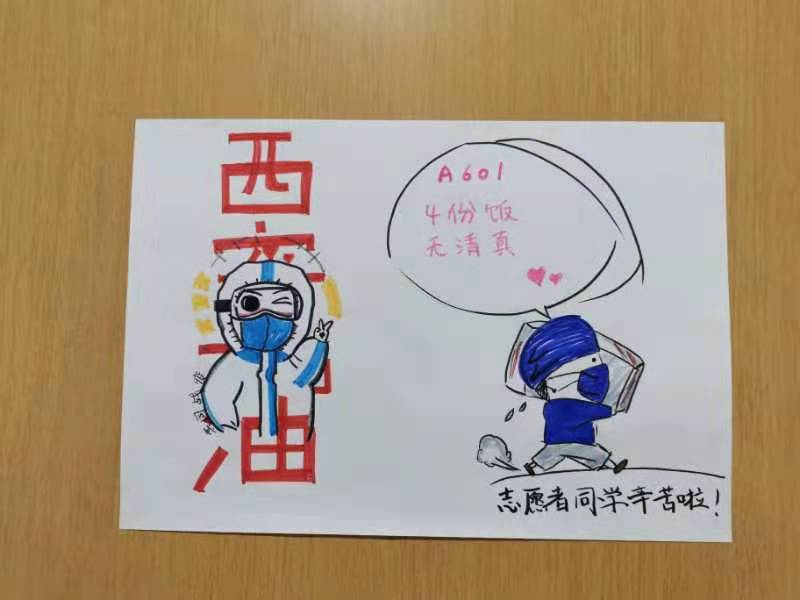 西安石油
A601
4份饭
无清真
同战疫
志愿者同学辛苦啦!